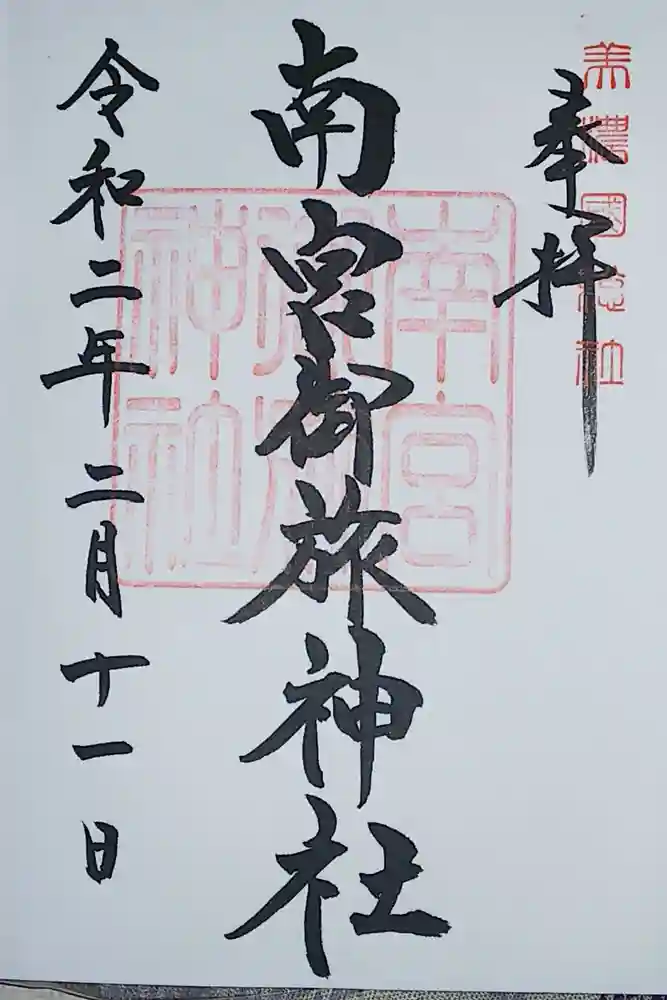 美濃國総社
奉拝
南宮御旅神社
南宮
旅所
神社
令和二年二月十一日